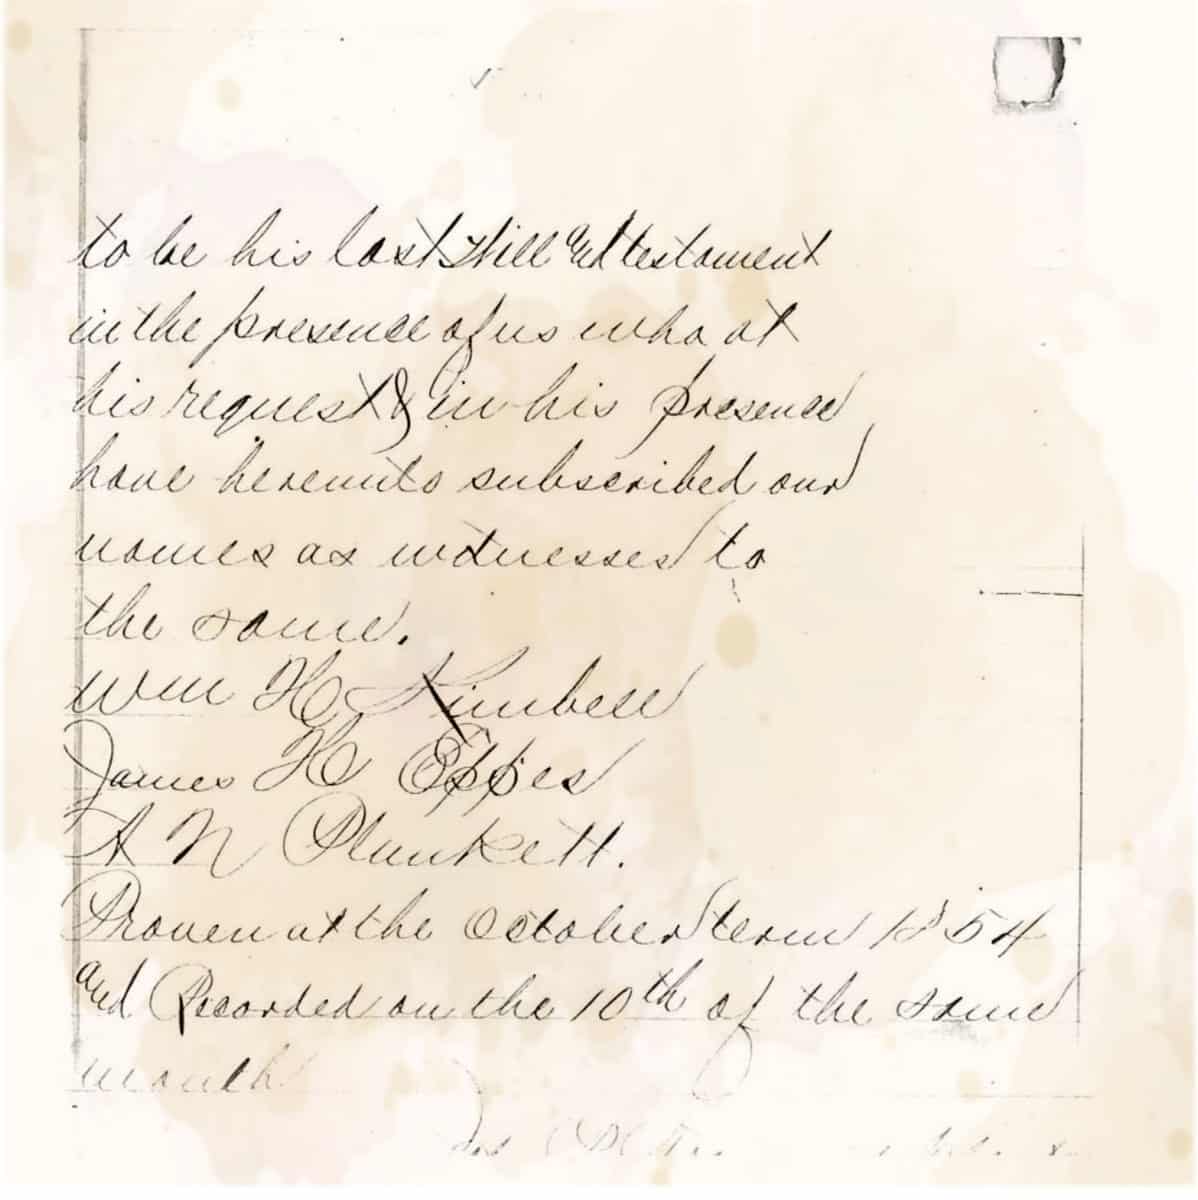 to be his last Will and testament
in the presence of us who at
his request & in his presence
have hereunto subscribed our
names as witnesses to
the same.
Wm H Kimbell
James H Eppes
A N Plunkett.
Proven at the October term 1854
and Recorded on the 10th of the same
month